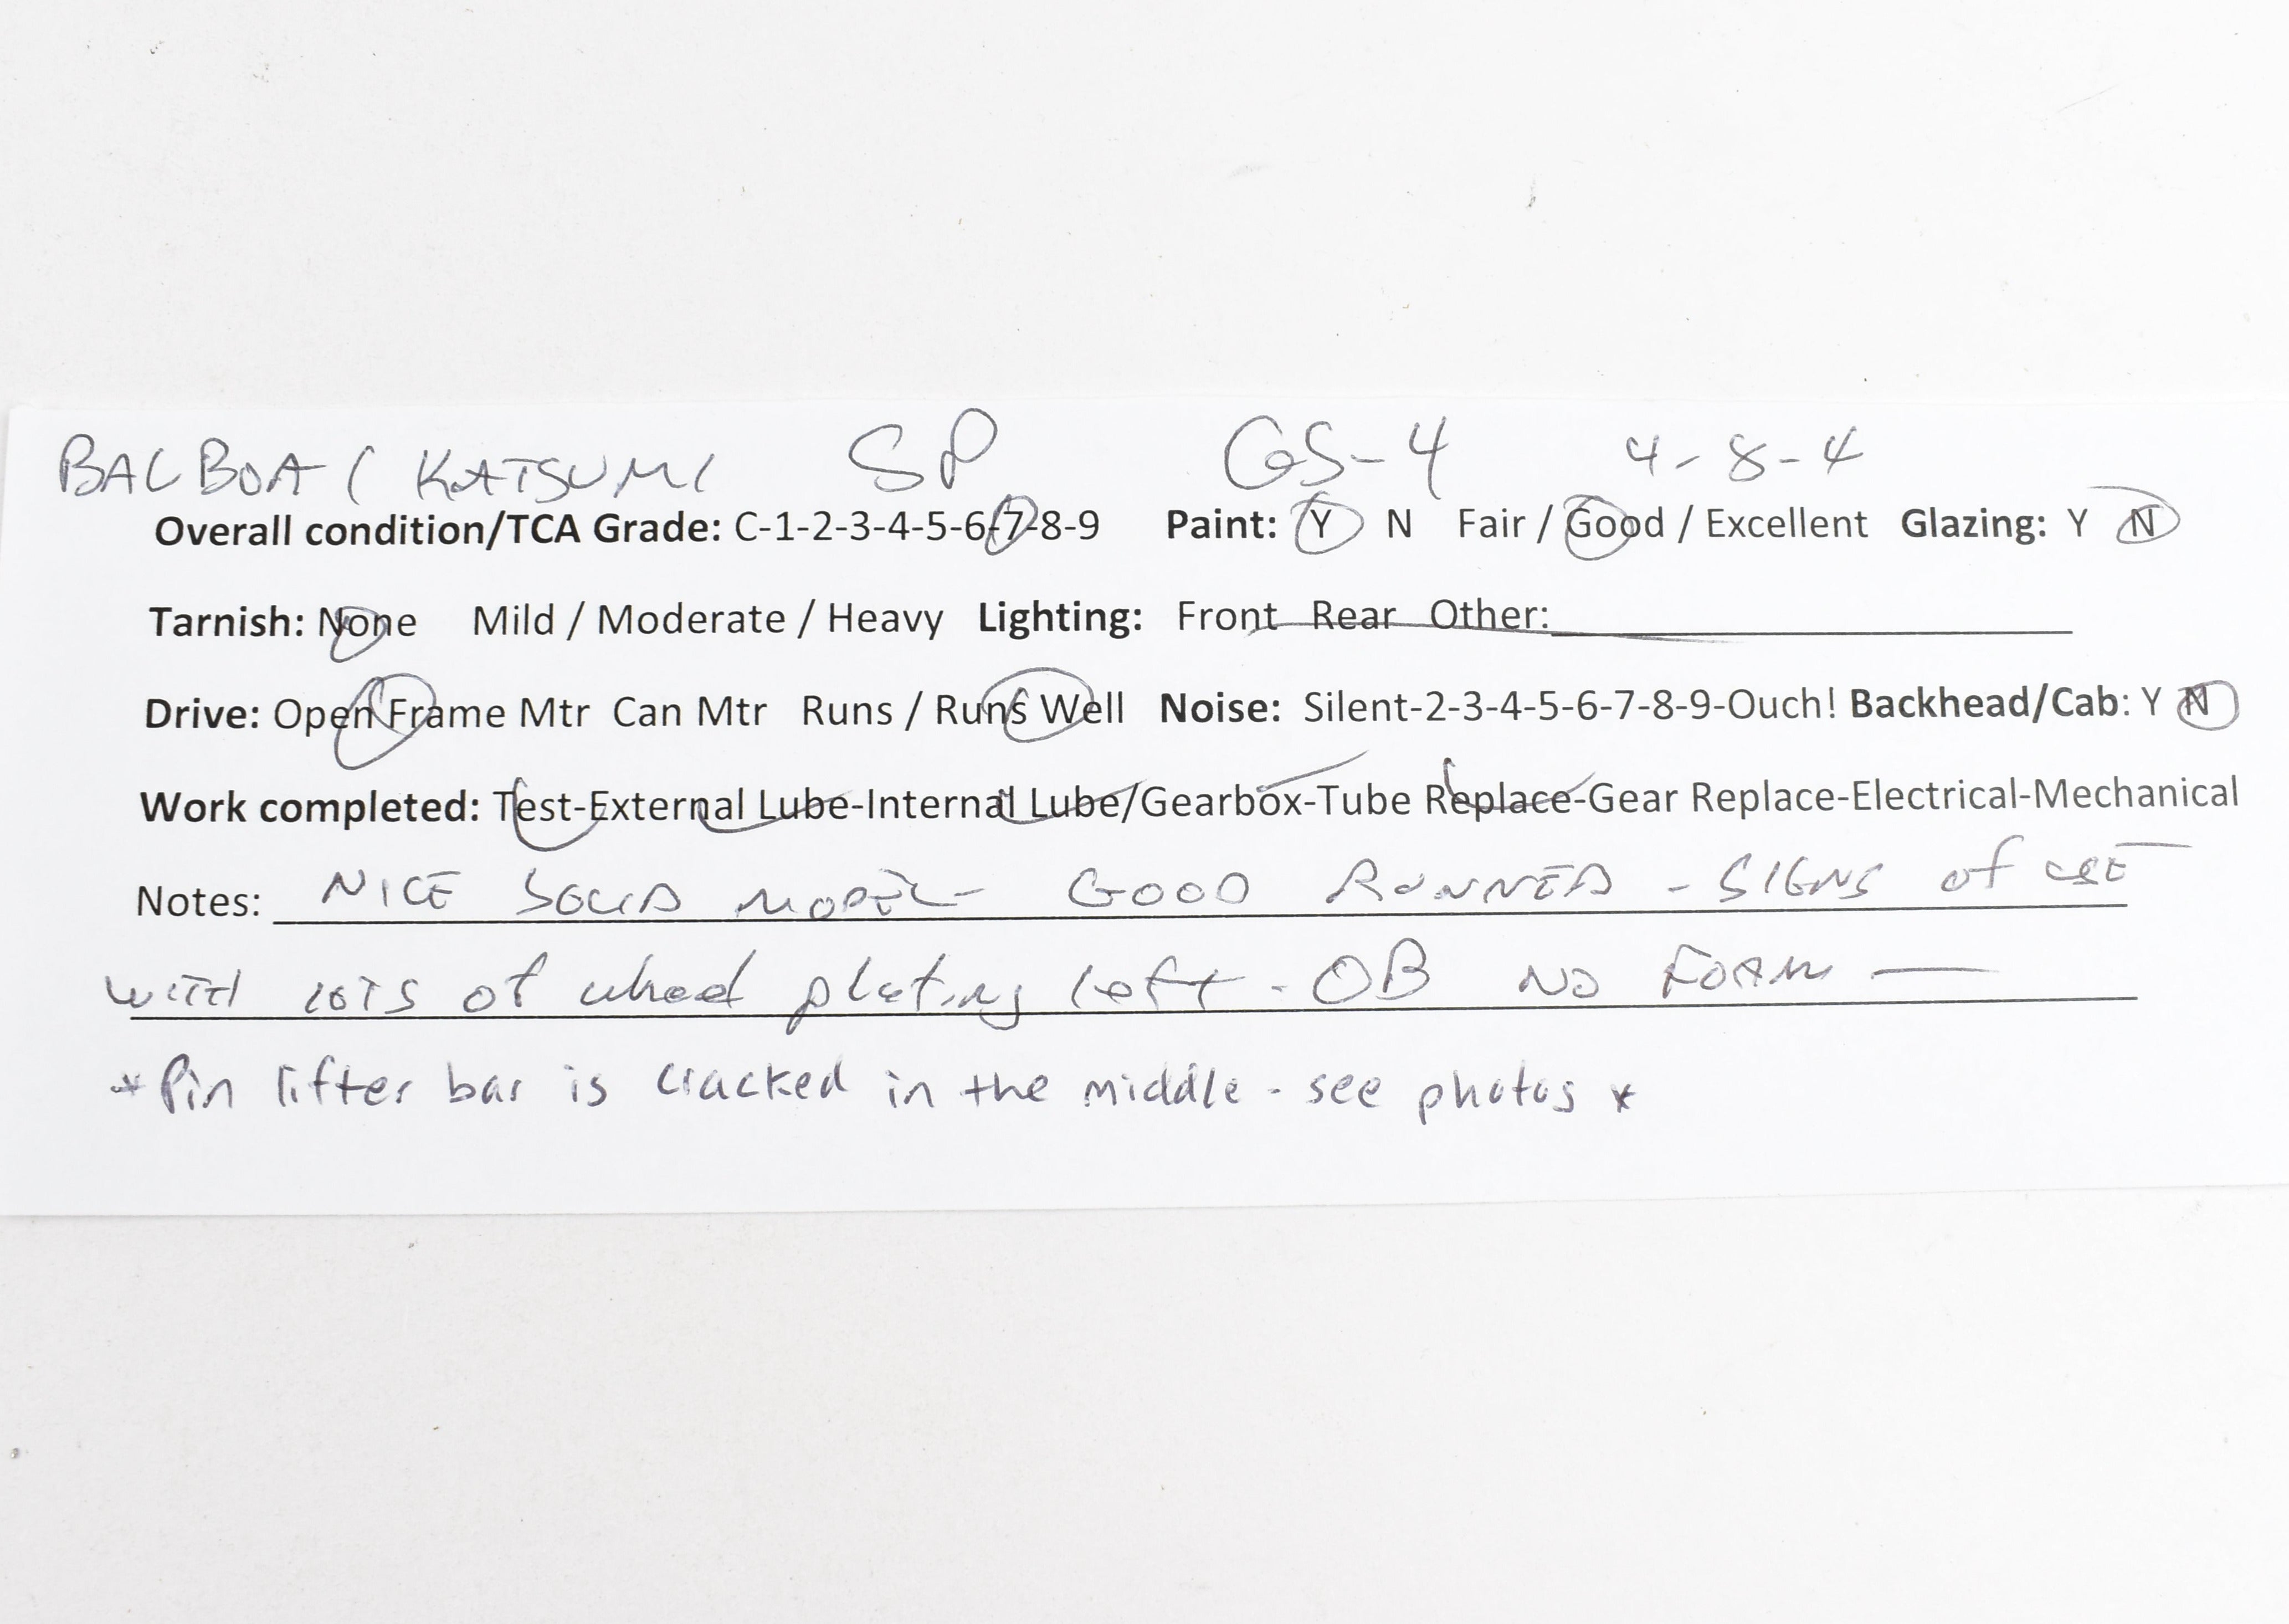 BALBOA / KATSUMI SP GS-4 4-8-4
Overall condition/TCA Grade: C-1-2-3-4-5-6-7-8-9 Paint: Y N Fair / Good / Excellent Glazing: Y N
Tarnish: None Mild / Moderate / Heavy Lighting: Front Rear Other:
Drive: Open Frame Mtr Can Mtr Runs / Runs Well Noise: Silent-2-3-4-5-6-7-8-9-Ouch! Backhead/Cab: Y N
Work completed: Test-External Lube-Internal Lube/Gearbox-Tube Replace-Gear Replace-Electrical-Mechanical
Notes: NICE SOLID MODEL - GOOD RUNNER - SIGNS of USE
WITH LOTS of wheel plating left - OB NO FOAM —
* Pin lifter bar is cracked in the middle - see photos *